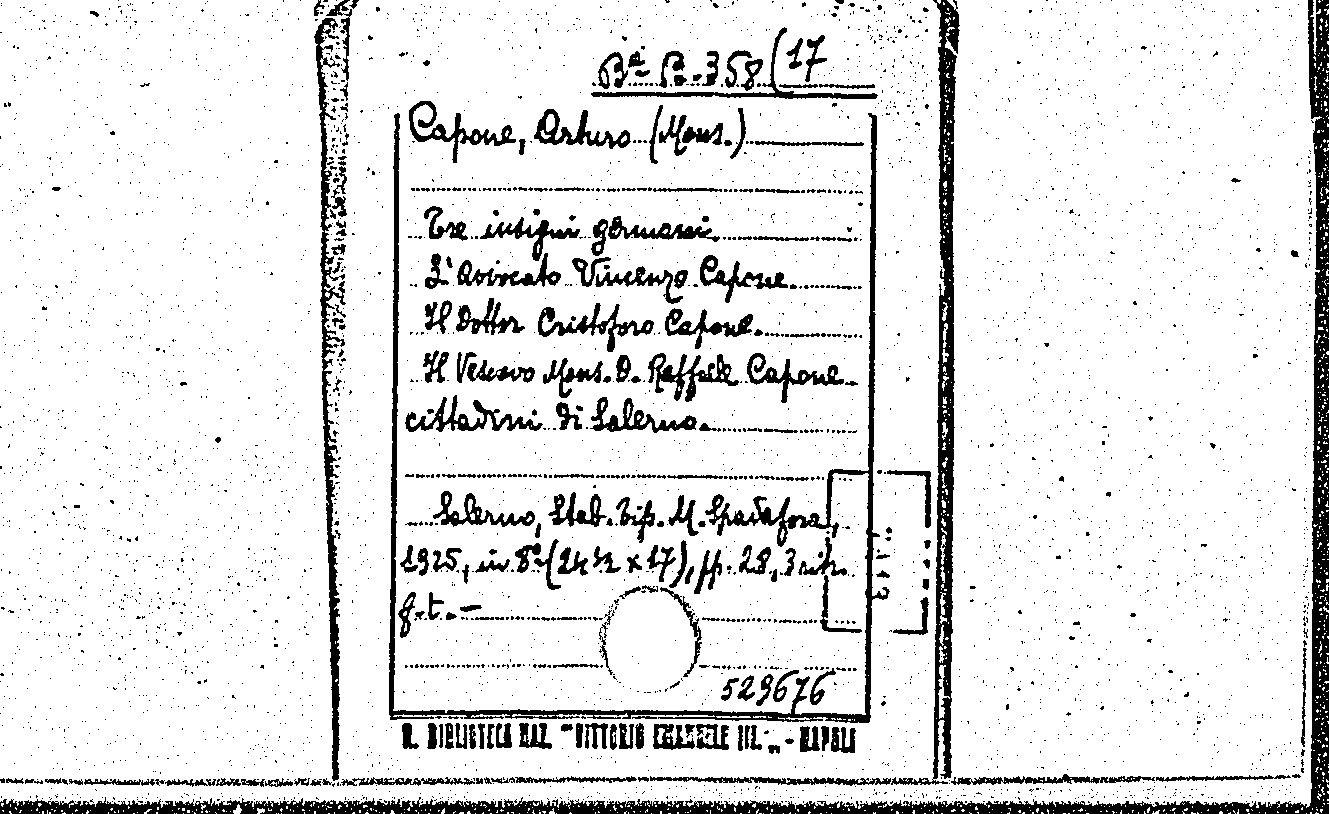 Bª B. 358(17
Capone, Arturo (Mons.)
Tre insigni germani.
L'Avvocato Vincenzo Capone.
Il Dottor Cristoforo Capone.
Il Vescovo Mons. D. Raffaele Capone
cittadini di Salerno.
Salerno, Stab. Tip. M. Spadafora,
1925, in 8º (24 ½ x 17), pp. 28, 3 ritr.
f. t. -
529676
R. BIBLIOTECA NAZ. "VITTORIO EMANUELE III." - NAPOLI